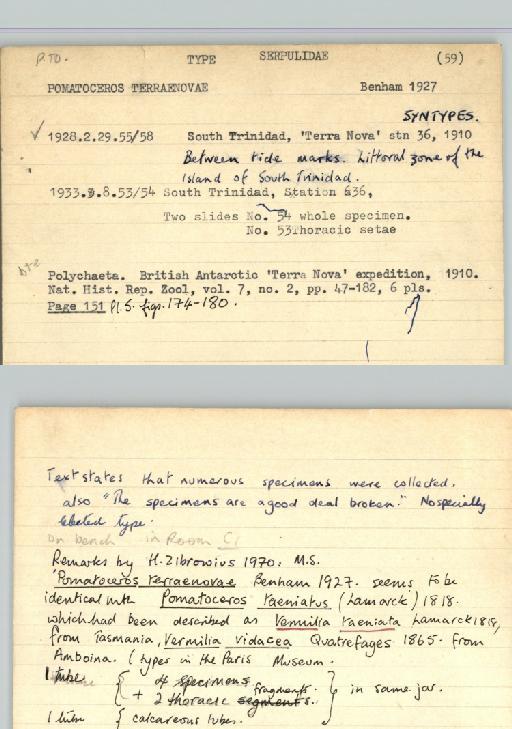 P.T.O. TYPE SERPULIDAE (59)
POMATOCEROS TERRAENOVAE Benham 1927
SYNTYPES.
✓ 1928.2.29.55/58 South Trinidad, 'Terra Nova' stn 36, 1910
Between tide marks. Littoral zone of the
Island of South Trinidad.
1933.3.8.53/54 South Trinidad, Station 636,
Two slides No. 54 whole specimen.
No. 53Thoracic setae
Polychaeta. British Antarctic 'Terra Nova' expedition, 1910.
Nat. Hist. Rep. Zool, vol. 7, no. 2, pp. 47-182, 6 pls.
Page 151 Pl 5. figs. 174-180.
Text states that numerous specimens were collected.
also "The specimens are a good deal broken." No specially
selected type.
on bench in Room C1
Remarks by H. Zibrowius 1970. M.S.
'Pomatoceros terraenovae Benham 1927. seems to be
identical with Pomatoceros taeniatus (Lamarck) 1818.
which had been described as Vermilia taeniata Lamarck 1818,
from Tasmania, Vermilia vidacea Quatrefages 1865. from
Amboina. (types in the Paris Museum.
1 tube { 4 specimens fragments. } in same jar.
+ 2 thoracic segments.
1 tube { calcareous tubes.